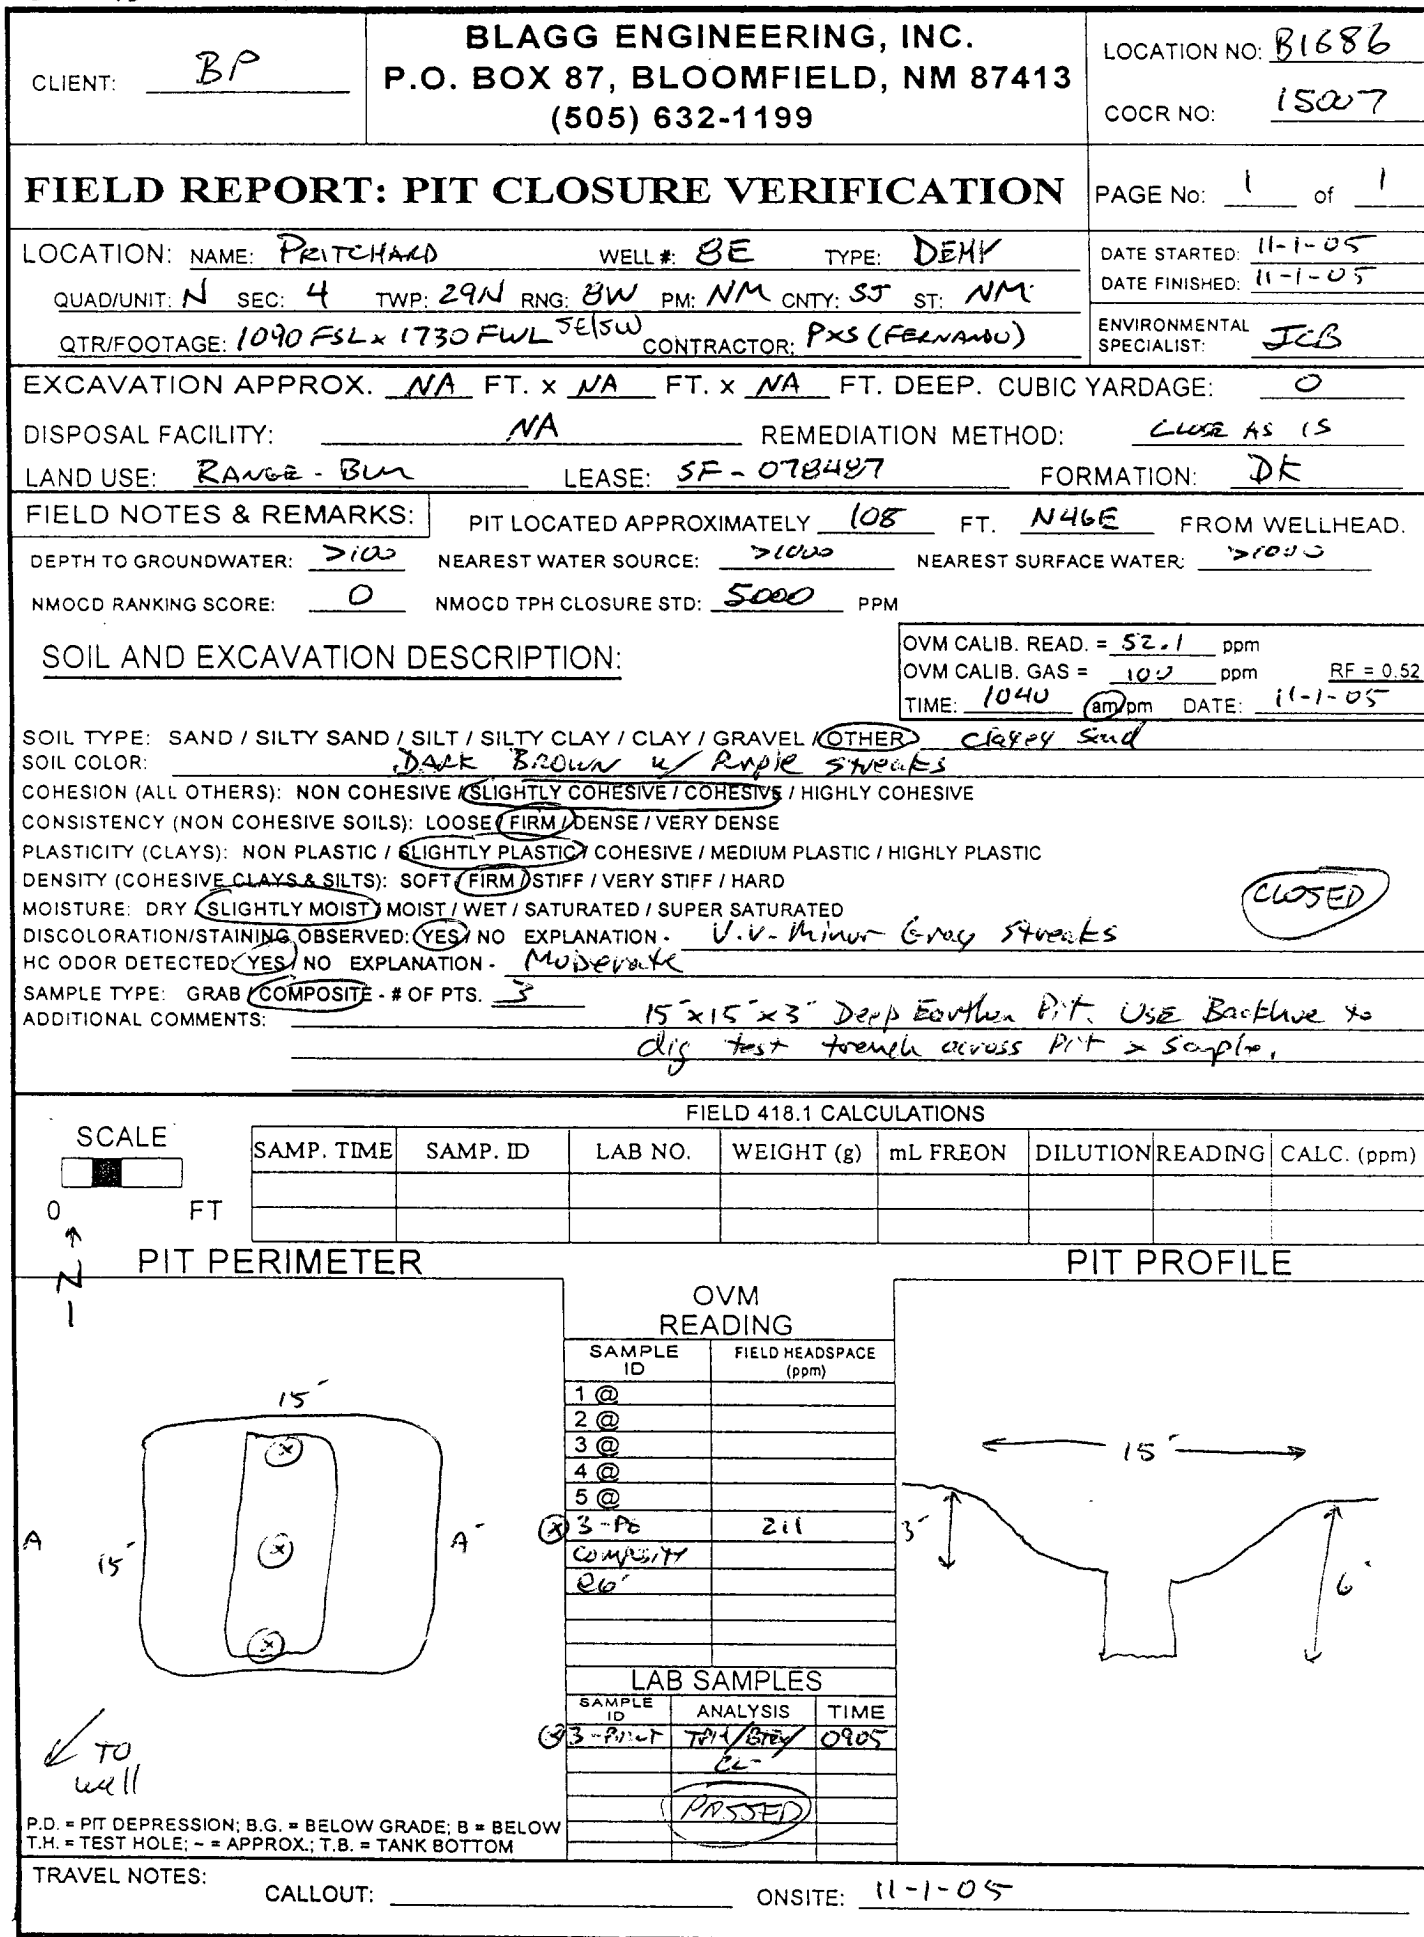 CLIENT: BP
BLAGG ENGINEERING, INC.
P.O. BOX 87, BLOOMFIELD, NM 87413
(505) 632-1199
LOCATION NO: B1686
COCR NO: 15007
FIELD REPORT: PIT CLOSURE VERIFICATION
PAGE No: 1 of 1
LOCATION: NAME: PRITCHARD WELL #: 8E TYPE: DEHY
QUAD/UNIT: N SEC: 4 TWP: 29N RNG: 8W PM: NM CNTY: SJ ST: NM
QTR/FOOTAGE: 1090 FSL x 1730 FWL SE/SW CONTRACTOR: PXS (FERNANDO)
DATE STARTED: 11-1-05
DATE FINISHED: 11-1-05
ENVIRONMENTAL SPECIALIST: JCB
EXCAVATION APPROX. NA FT. x NA FT. x NA FT. DEEP. CUBIC YARDAGE: 0
DISPOSAL FACILITY: NA REMEDIATION METHOD: CLOSE AS IS
LAND USE: RANGE - BLM LEASE: SF - 078487 FORMATION: DK
FIELD NOTES & REMARKS: PIT LOCATED APPROXIMATELY 108 FT. N46E FROM WELLHEAD.
DEPTH TO GROUNDWATER: >100 NEAREST WATER SOURCE: >1000 NEAREST SURFACE WATER: >1000
NMOCD RANKING SCORE: 0 NMOCD TPH CLOSURE STD: 5000 PPM
SOIL AND EXCAVATION DESCRIPTION:
OVM CALIB. READ. = 52.1 ppm
OVM CALIB. GAS = 100 ppm RF = 0.52
TIME: 1040 am/pm DATE: 11-1-05
SOIL TYPE: SAND / SILTY SAND / SILT / SILTY CLAY / CLAY / GRAVEL / OTHER Clayey Sand
SOIL COLOR: DARK BROWN w/ Purple streaks
COHESION (ALL OTHERS): NON COHESIVE / SLIGHTLY COHESIVE / COHESIVE / HIGHLY COHESIVE
CONSISTENCY (NON COHESIVE SOILS): LOOSE / FIRM / DENSE / VERY DENSE
PLASTICITY (CLAYS): NON PLASTIC / SLIGHTLY PLASTIC / COHESIVE / MEDIUM PLASTIC / HIGHLY PLASTIC
DENSITY (COHESIVE CLAYS & SILTS): SOFT / FIRM / STIFF / VERY STIFF / HARD
MOISTURE: DRY / SLIGHTLY MOIST / MOIST / WET / SATURATED / SUPER SATURATED
CLOSED
DISCOLORATION/STAINING OBSERVED: YES / NO EXPLANATION - V.V. Minor Gray Streaks
HC ODOR DETECTED: YES / NO EXPLANATION - Moderate
SAMPLE TYPE: GRAB / COMPOSITE - # OF PTS. 3
ADDITIONAL COMMENTS: 15' x 15' x 3' Deep Earthen Pit. USE Backhoe to
dig test trench across Pit & Sample.
FIELD 418.1 CALCULATIONS
SCALE
0 FT
SAMP. TIME SAMP. ID LAB NO. WEIGHT (g) mL FREON DILUTION READING CALC. (ppm)
N
PIT PERIMETER
PIT PROFILE
OVM READING
SAMPLE ID FIELD HEADSPACE (ppm)
1 @
2 @
3 @
4 @
5 @
x 3-Pt 211
COMPOSITE
@6'
15'
A 15' A'
x
x
x
15'
3'
6'
LAB SAMPLES
SAMPLE ID ANALYSIS TIME
x 3-Point TPH/BTEX/ 0905
CL-
PASSED
TO
well
P.D. = PIT DEPRESSION; B.G. = BELOW GRADE; B = BELOW
T.H. = TEST HOLE; ~ = APPROX.; T.B. = TANK BOTTOM
TRAVEL NOTES:
CALLOUT: ONSITE: 11-1-05